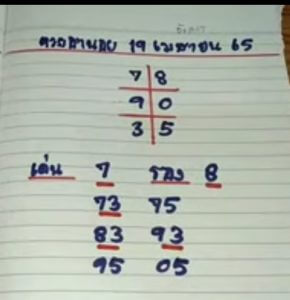 ฮานอย 19 เมษายน 65
7 8
9 0
3 5
เด่น 7 รอง 8
73 75
83 93
95 05